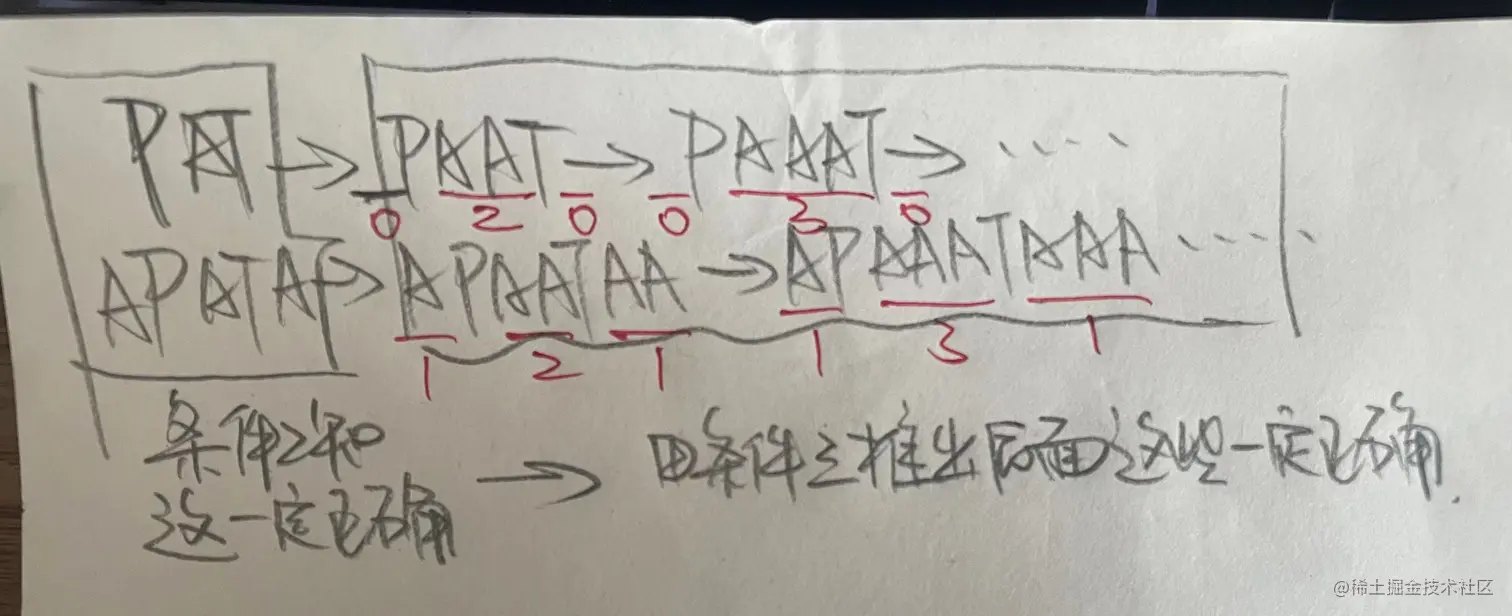 PAT → PAAT → PAAAT → ·····
0 2 0 0 3 0
APATA → APAATAA → APAAATAAA ·····
1 2 1 1 3 1
条件2知 → 由条件3推出后面这些一定正确.
这一定正确
@稀土掘金技术社区